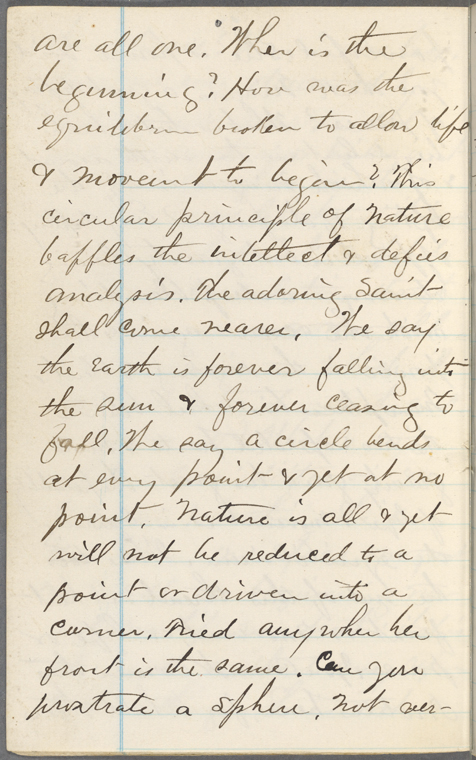 are all one. When is the
beginning? How was the
equilibrm broken to allow life
& movemt to begin? This
circular principle of Nature
baffles the intellect & defies
analysis. The adoring Saint
shall come nearer. We say
the Earth is forever falling into
the sun & forever ceasing to
fall. We say a circle bends
at every point & yet at no
point. Nature is all & yet
will not be reduced to a
point or driven into a
corner. Tried anywher her
front is the same. Can you
prostrate a Sphere. Not ver-